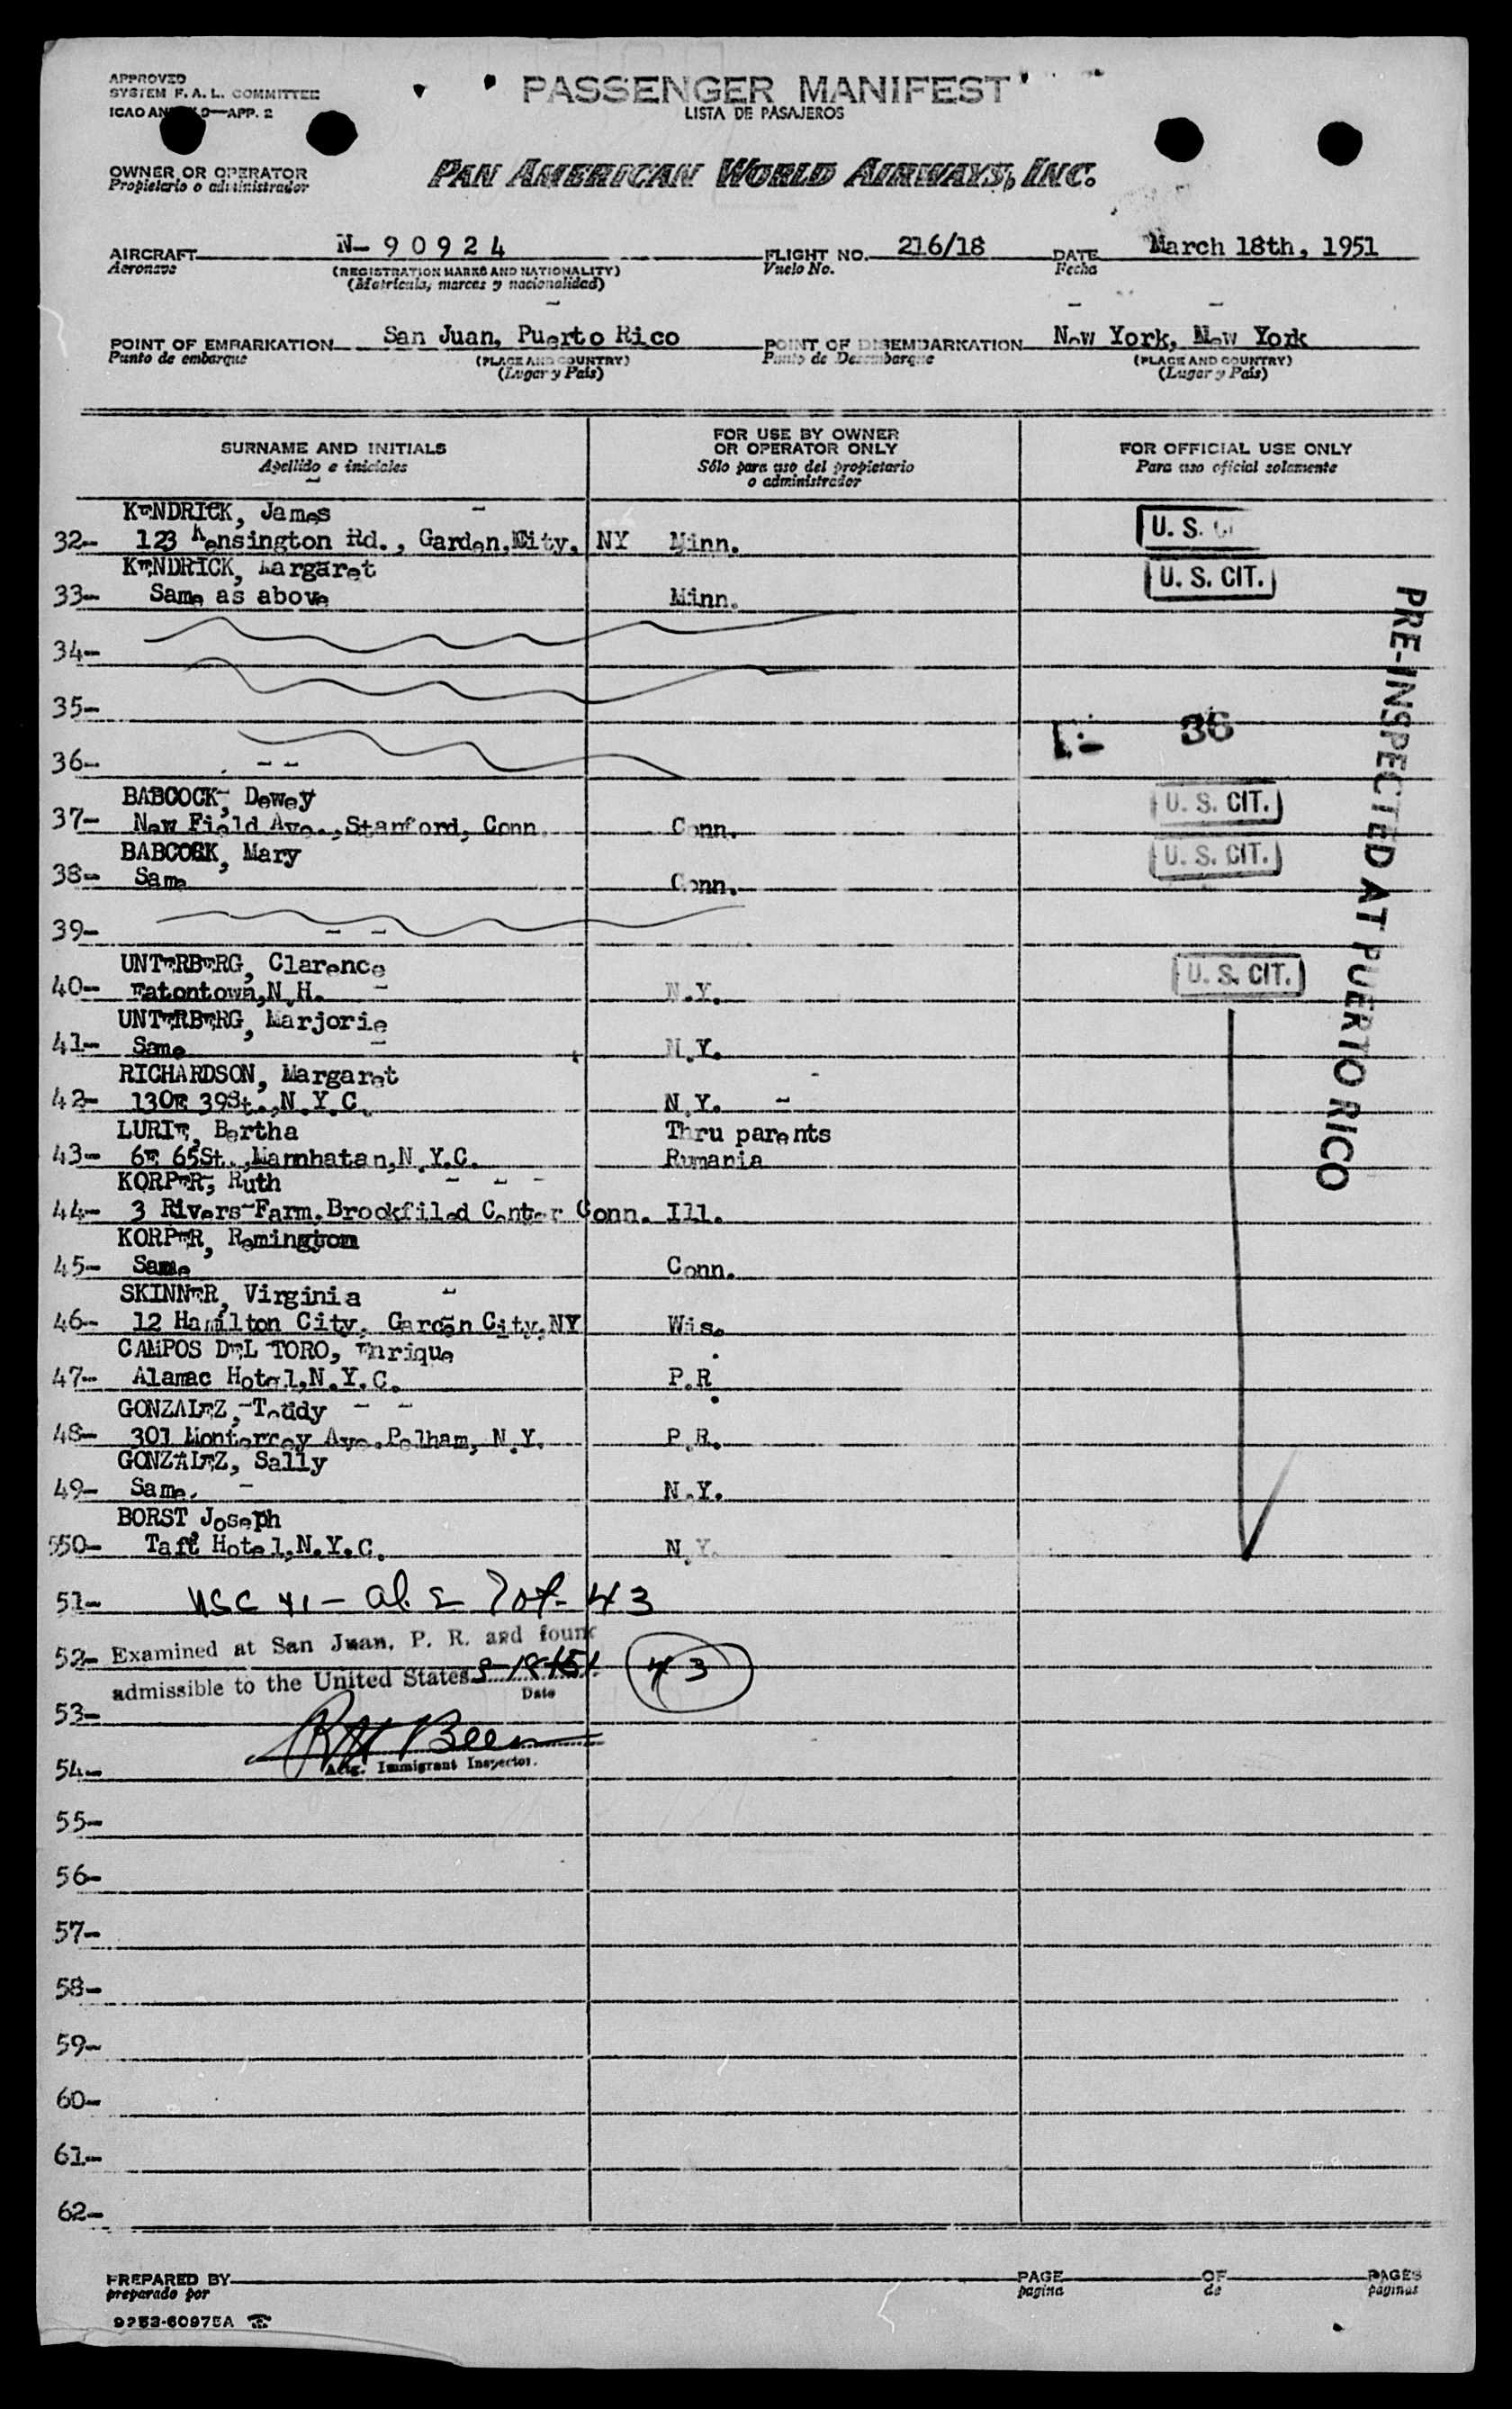 APPROVED
SYSTEM F. A. L. COMMITTEE
ICAO AN 9—APP. 2
PASSENGER MANIFEST
LISTA DE PASAJEROS
OWNER OR OPERATOR
Propietario o administrador
PAN AMERICAN WORLD AIRWAYS, INC.
AIRCRAFT N-90924 FLIGHT NO. 216/18 DATE March 18th, 1951
Aeronave (REGISTRATION MARKS AND NATIONALITY) Vuelo No. Fecha
(Matricula, marcas y nacionalidad)
POINT OF EMBARKATION San Juan, Puerto Rico POINT OF DISEMBARKATION New York, New York
Punto de embarque (PLACE AND COUNTRY) Punto de Desembarque (PLACE AND COUNTRY)
(Lugar y País) (Lugar y País)
SURNAME AND INITIALS
Apellido e iniciales
FOR USE BY OWNER
OR OPERATOR ONLY
Sólo para uso del propietario
o administrador
FOR OFFICIAL USE ONLY
Para uso oficial solamente
KENDRICK, James
32- 123 Kensington Rd., Garden City, NY Minn. U. S. C
KENDRICK, Margaret
33- Same as above Minn. U. S. CIT.
34-
35-
36
36-
BABCOCK, Dewey
37- New Field Ave.,Stanford, Conn. Conn. U. S. CIT.
BABCOCK, Mary
38- Same Conn. U. S. CIT.
39-
UNTERBERG, Clarence
40- Eatontown,N.H. N.Y. U. S. CIT.
UNTERBERG, Marjorie
41- Same N.Y.
RICHARDSON, Margaret
42- 130E 39St.,N.Y.C. N.Y.
LURIE, Bertha Thru parents
43- 6E 65St.,Mannhatan,N.Y.C. Rumania
KORPER, Ruth
44- 3 Rivers-Farm.Brookfiled Center Conn. Ill.
KORPER, Remington
45- Same Conn.
SKINNER, Virginia
46- 12 Hamilton City, Garden City,NY Wis.
CAMPOS DEL TORO, Enrique
47- Alamac Hotel,N.Y.C. P.R
GONZALEZ, Teddy
48- 301 Monterrey Ave.Pelham, N.Y. P.R.
GONZALEZ, Sally
49- Same. N.Y.
BORST Joseph
550- Taft Hotel,N.Y.C. N.Y.
PRE-INSPECTED AT PUERTO RICO
51- USC 41 - al. 2 Tot- 43
52- Examined at San Juan, P. R. and found
admissible to the United States 3-18-51 43
Date
53-
54- Actg. Immigrant Inspector.
55-
56-
57-
58-
59-
60-
61-
62-
PREPARED BY PAGE OF PAGES
preparado por pagina de páginas
9253-60975A